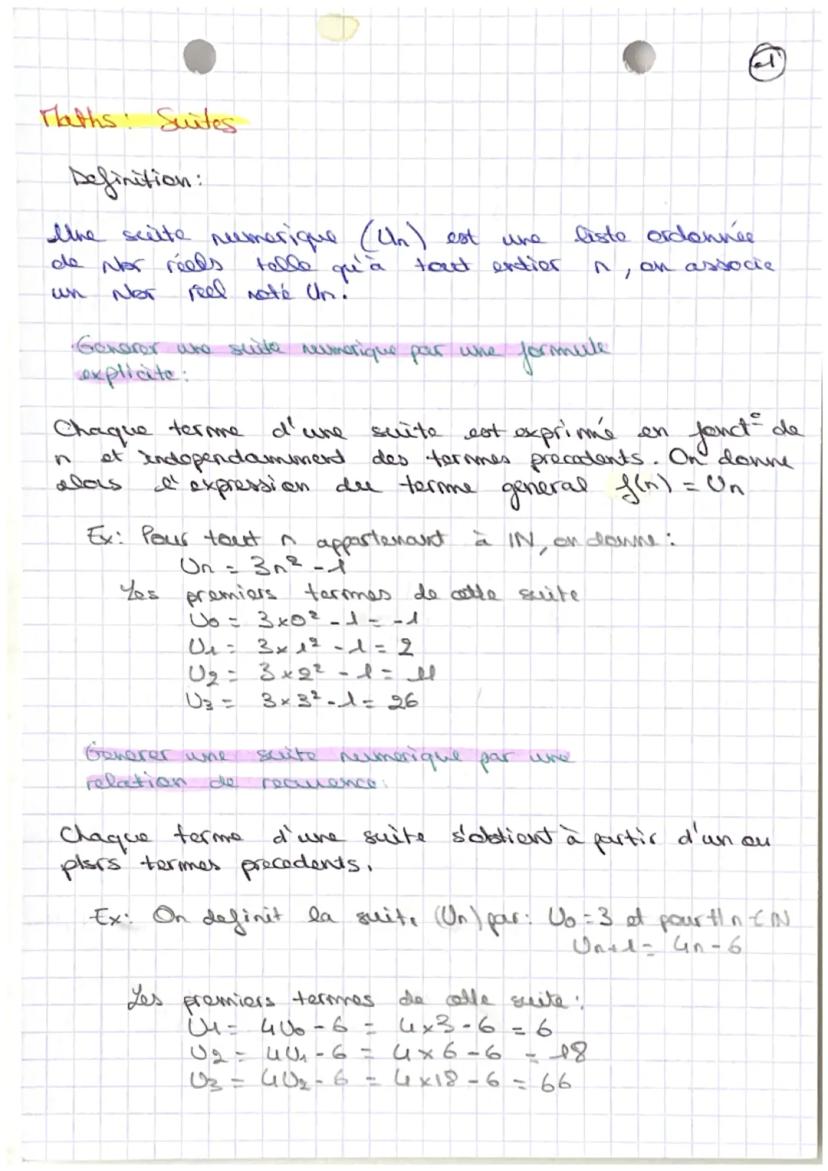 1
Maths: Suites
Definition:
Une suite numerique (Un) est une liste ordonnée
de Nbr réels telle qu'à tout entier n, on associe
un Nbr réel noté Un.
Generer une suite numerique par une formule
explicite:
Chaque terme d'une suite est exprimé en fonct° de
n et independamment des termes precedents. On donne
alors l'expression du terme general f(n) = Un
Ex: Pour tout n appartenant à IN, on donne:
Un = 3n² - 1
Les premiers termes de cette suite
U0 = 3x0² - 1 = -1
U1 = 3x1² - 1 = 2
U2 = 3x2² - 1 = 11
U3 = 3x3² - 1 = 26
Generer une suite numerique par une
relation de recurence:
Chaque terme d'une suite s'obtient à partir d'un ou
plsrs termes precedents.
Ex: On definit la suite (Un) par: U0 = 3 et pour tt n ∈ IN
Un+1 = 4n - 6
Les premiers termes de cette suite:
U1 = 4U0 - 6 = 4x3 - 6 = 6
U2 = 4U1 - 6 = 4x6 - 6 = 18
U3 = 4U2 - 6 = 4x18 - 6 = 66